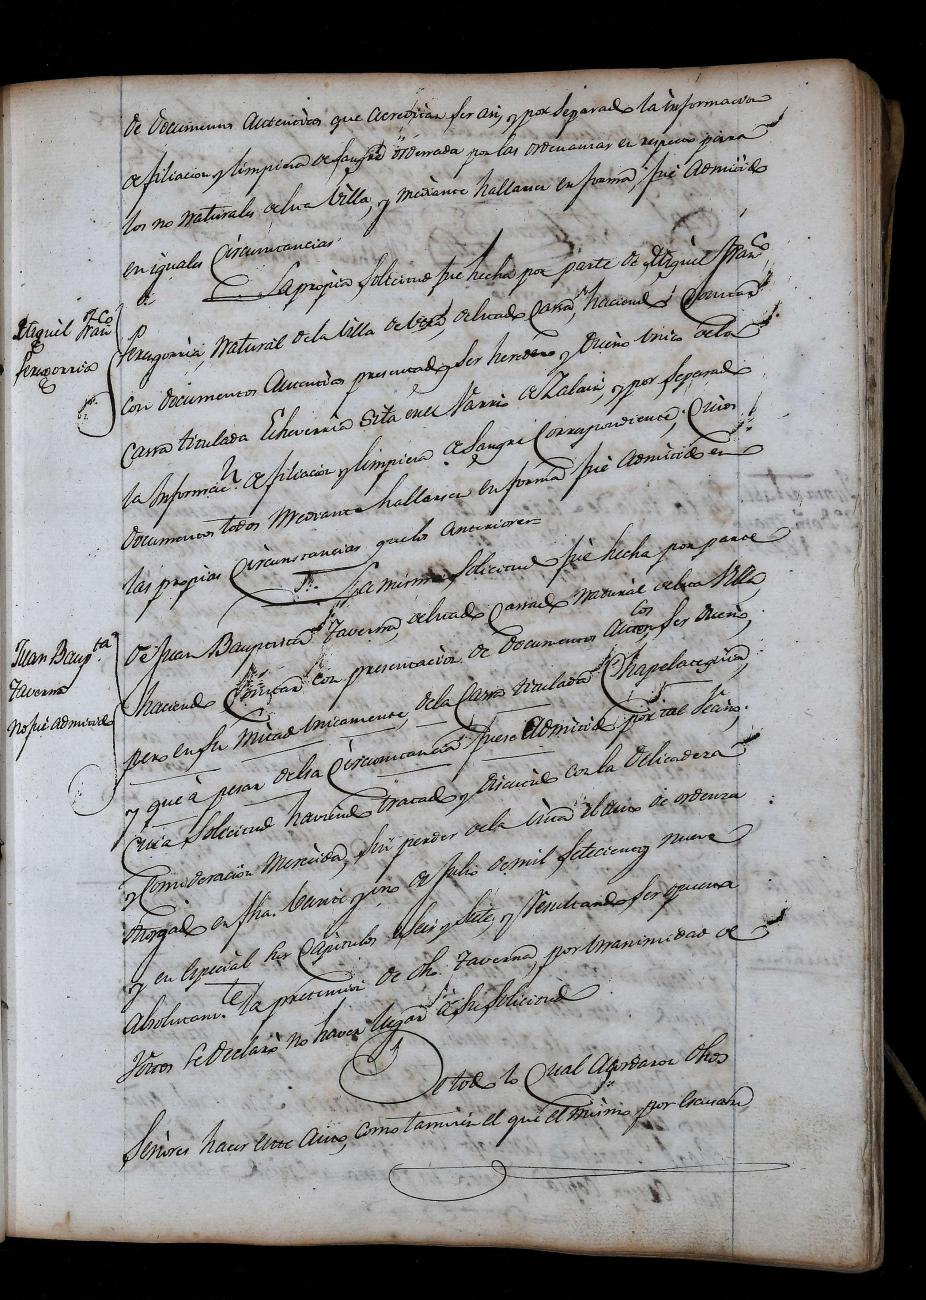 de documentos Autenticos que acreditan ser asi, y por separado la informacion
de filiacion y limpieza de sangre ordenada por las ordenanzas en respecto para
los no naturales de hta Villa, y mediante hallarse en forma, fué Admitido
en iguales Circunstancias
La propia solicitud fue hecha por parte de Miguel Franco
Miguel Franco
Perugorria, Natural de la Villa de Vera, de estado Casado, haciendo Constar
Perugorria
con documentos Autenticos presentados ser heredero y Dueño Unico de la
Cassa titulada Echeverria Sita en el Varrio de Zalain, y por separado
la Informacn de filiacion y limpieza de Sangre Correspondiente; Cuios
documentos todos Mediante hallarse en forma fué Admitido en
las propias Circunstancias que los anteriores=
La misma Solicitud fué hecha por parte
Juan Baupta
de Juan Bauptista Taverna, de estado Cassado natural de hta Villa
Taverna
haciendo Constar con presentacion de documentos Autencos Ser Dueño,
No fué admitido
pero en su Mitad Unicamente, de la Cassa titulada Chapelateguia,
y que á pesar de esta Circunstancia fuese Admitido por tal Vecino;
Cuia Solicitud haviendo tratado y discutido con la delicadeza
y Consideracion Merecida, sin perder de la Vista el auto de ordenza
otorgado en fha. Veinte y uno de Julio de mil setecientos nueve
y en especial sus Capitulos seis y siete, y Resultando ser opuesta
Absolutamte la pretension de dho. Taverna, por Unanimidad de
Votos se declaró no haver lugar á su solicitud
De todo lo Qual Acordaron dhos
Señores hacer este Auto, como tamvien el que el mismo por escusar